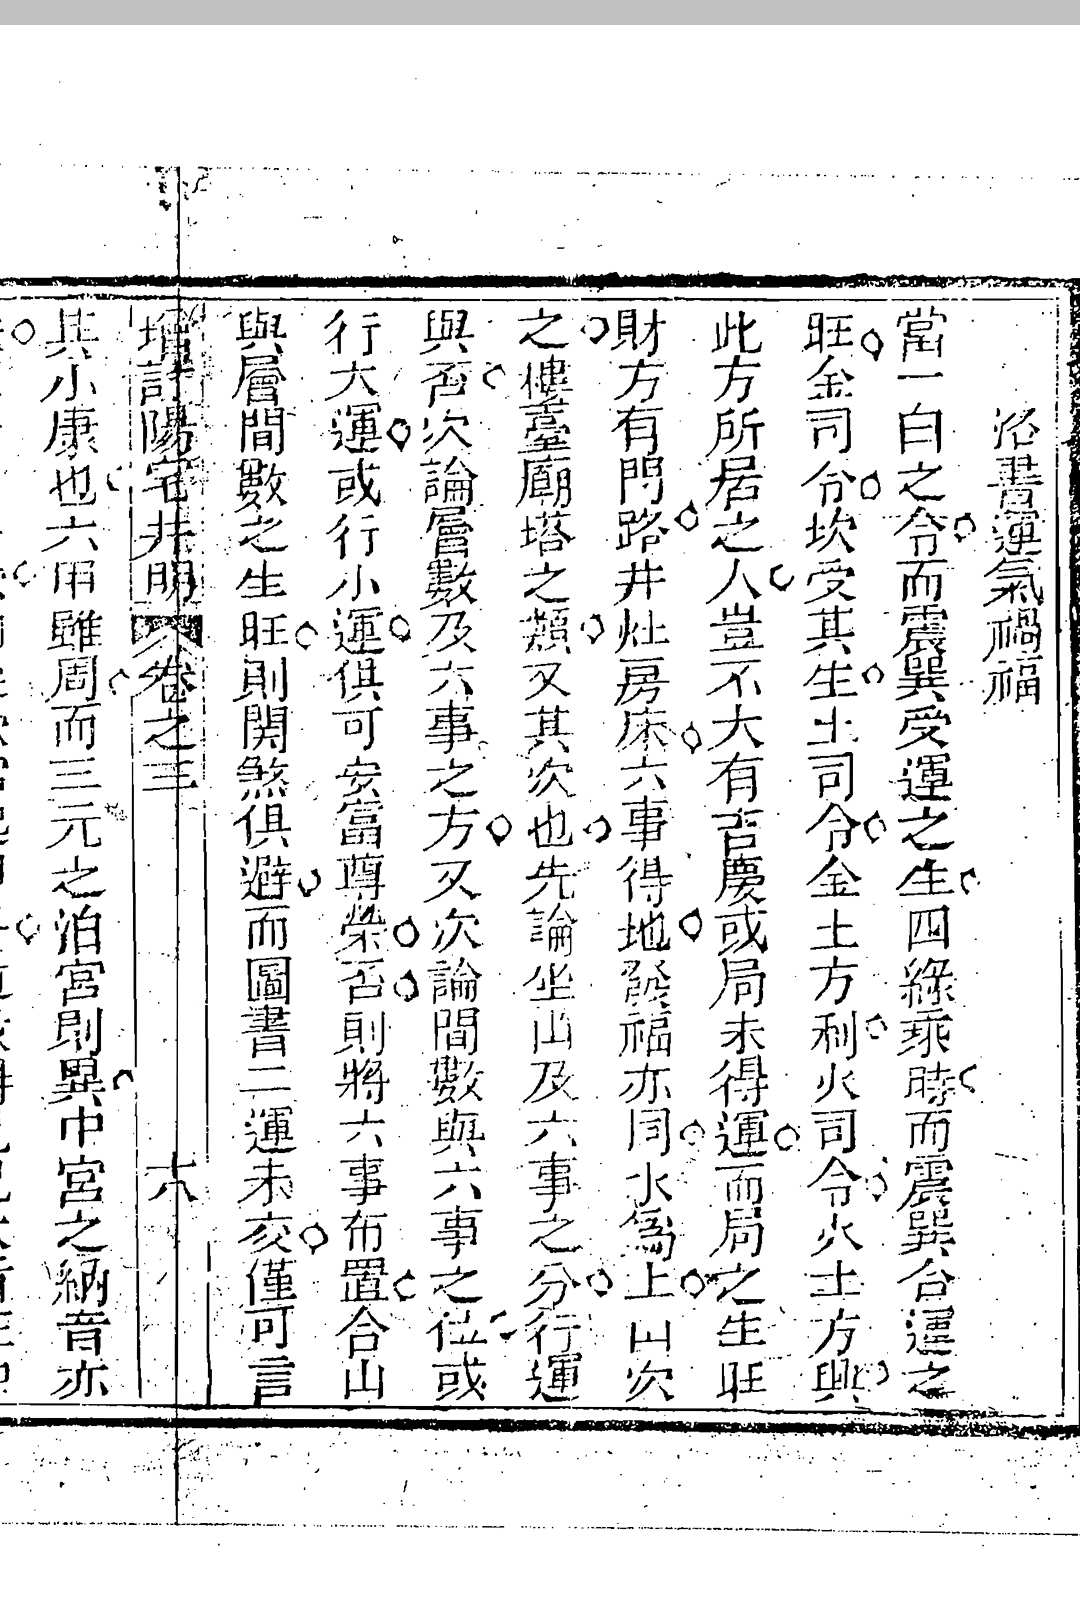 洛書運氣禍福
當一白之令而震巽受運之生四綠乘時而震巽合運之
旺金司令坎受其生土司令金土方利火司令火土方興
此方所居之人豈不大有吉慶或局未得運而局之生旺
財方有門路井灶房床六事得地發福亦同水爲上山次
之樓臺廟塔之類又其次也先論坐山及六事之分行運
與否次論層數及六事之方又次論間數與六事之位或
行大運或行小運俱可安富尊榮否則將六事布置合山
與層間數之生旺則関煞俱避而圖書二運未亥僅可言
增訂陽宅井明 卷之三 十八
其小康也六甲雖周而三元之泊宮則異中宮之納音亦